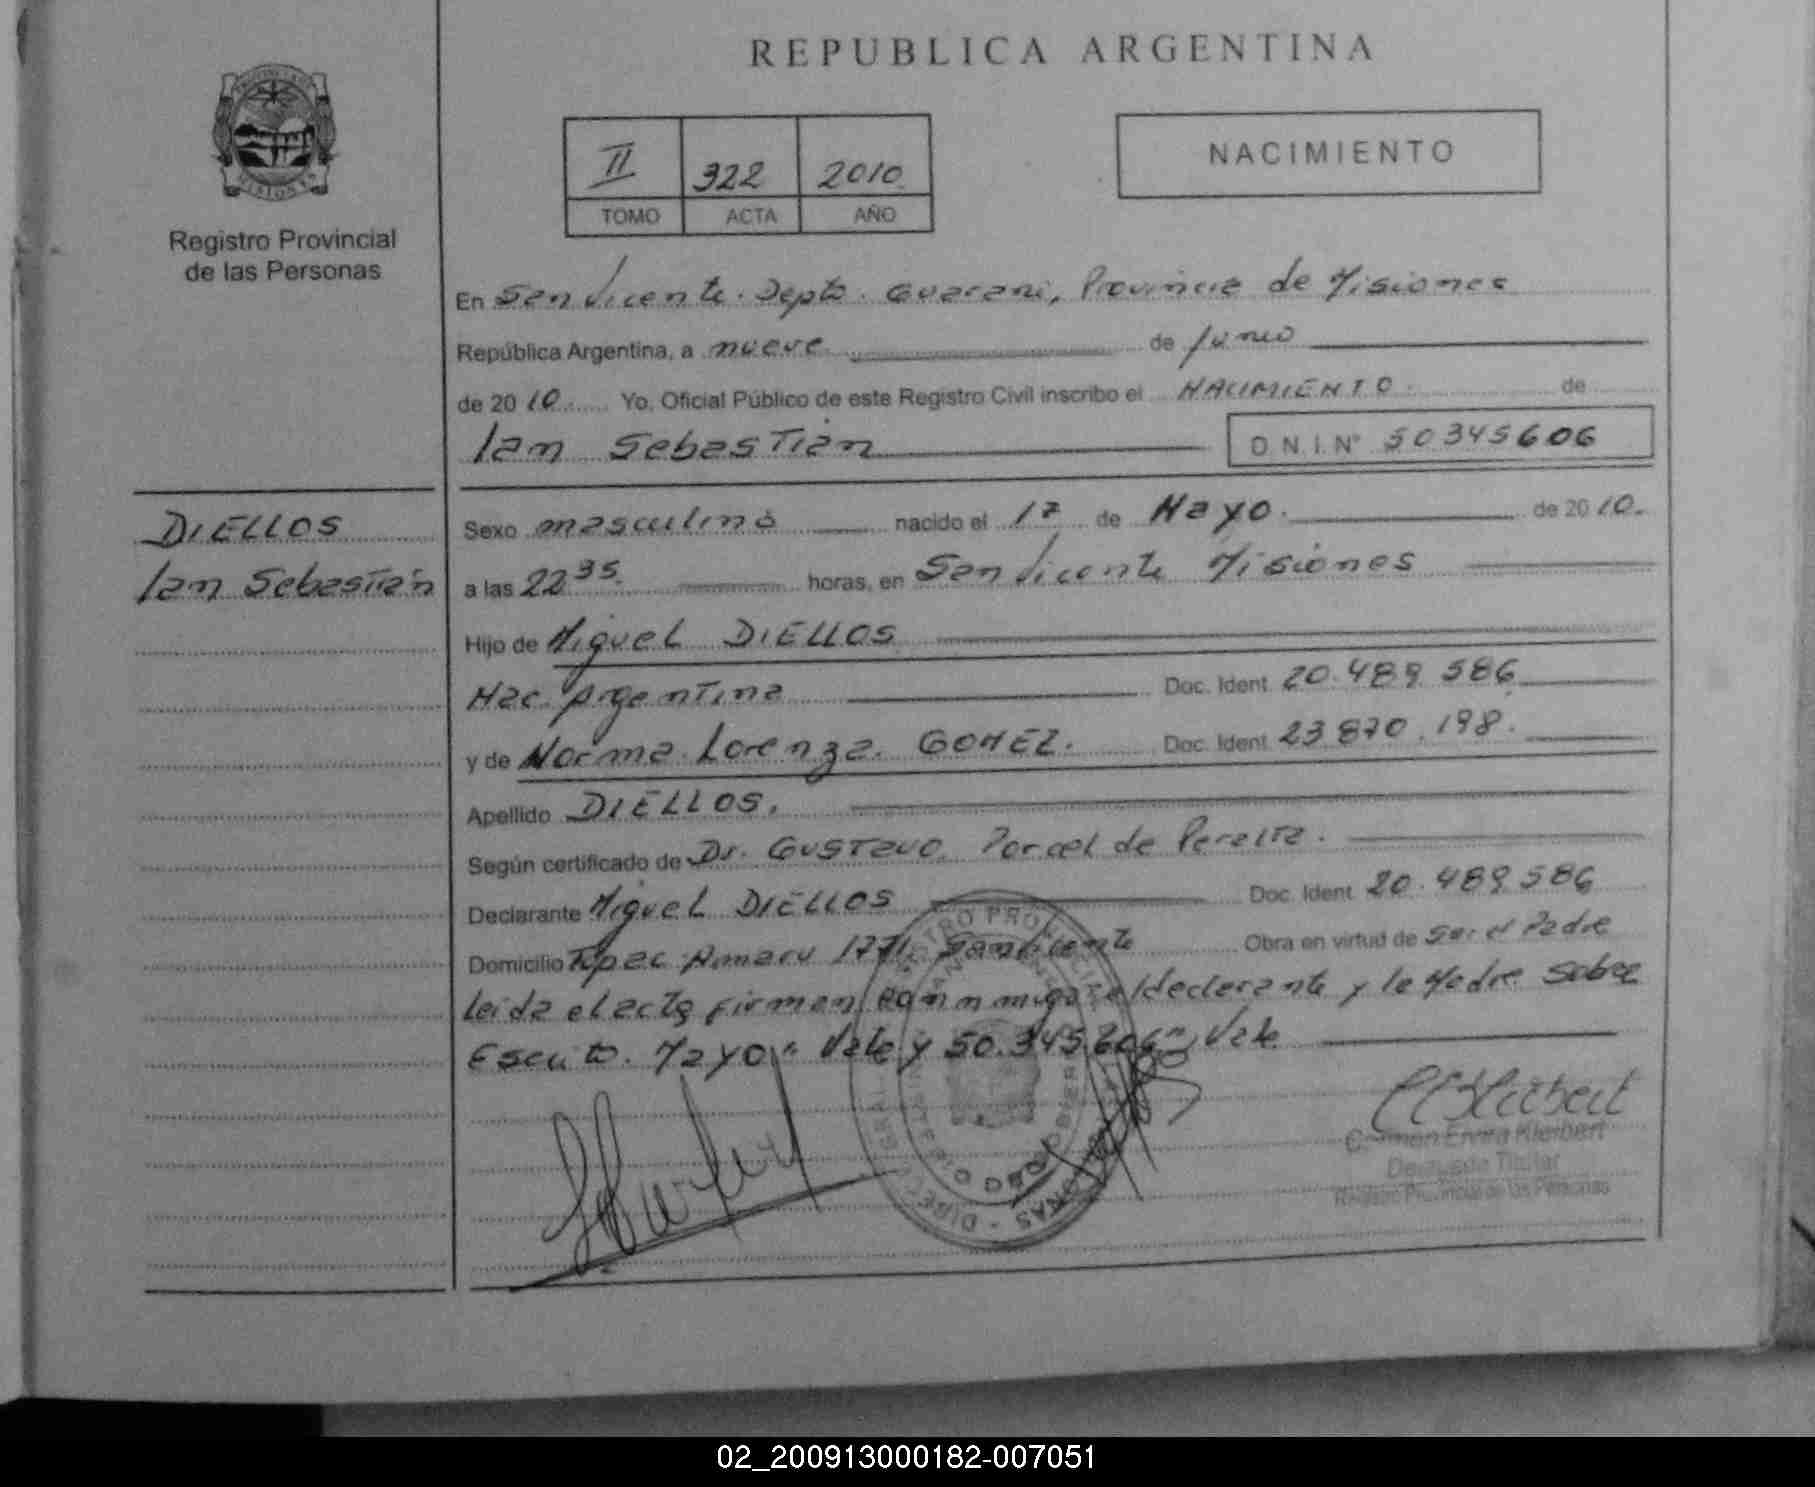 REPUBLICA ARGENTINA
PROVINCIA DE
MISIONES
Registro Provincial
de las Personas
II 322 2010
TOMO ACTA AÑO
NACIMIENTO
En San Vicente. Depto. Guarani, Provincia de Misiones
República Argentina, a nueve de Junio
de 2010. Yo, Oficial Público de este Registro Civil inscribo el NACIMIENTO. de
Ian Sebastián D.N.I. Nº 50345606
DIELLOS
Ian Sebastián
Sexo masculino nacido el 17 de Mayo. de 2010.
a las 22 35. horas, en San Vicente Misiones
Hijo de Miguel DIELLOS
Nac. Argentina Doc. Ident. 20.489.586
y de Norma Lorenza. GOMEZ. Doc. Ident. 23.870.198.
Apellido DIELLOS.
Según certificado de Dr. Gustavo Porcel de Peralta.
Declarante Miguel DIELLOS Doc. Ident. 20.489.586
Domicilio Tupac Amaru 1771, San Vicente Obra en virtud de Ser el Padre
Leida el acta firman conmigo el declarante y la Madre. Sobre
Escrito. Mayo" Vale y 50.345.606" Vale
Carmen Elvira Kleibert
Delegada Titular
Registro Provincial de las Personas
02_200913000182-007051